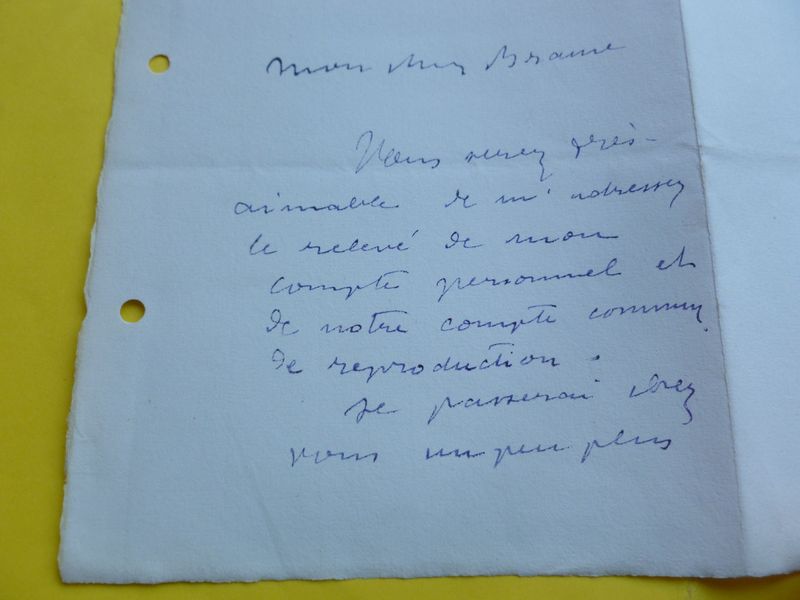 mon cher Brame
Vous serez très-
aimable de m'adresser
le relevé de mon
compte personnel et
de notre compte commun
de reproduction.
Je passerai chez
vous un peu plus